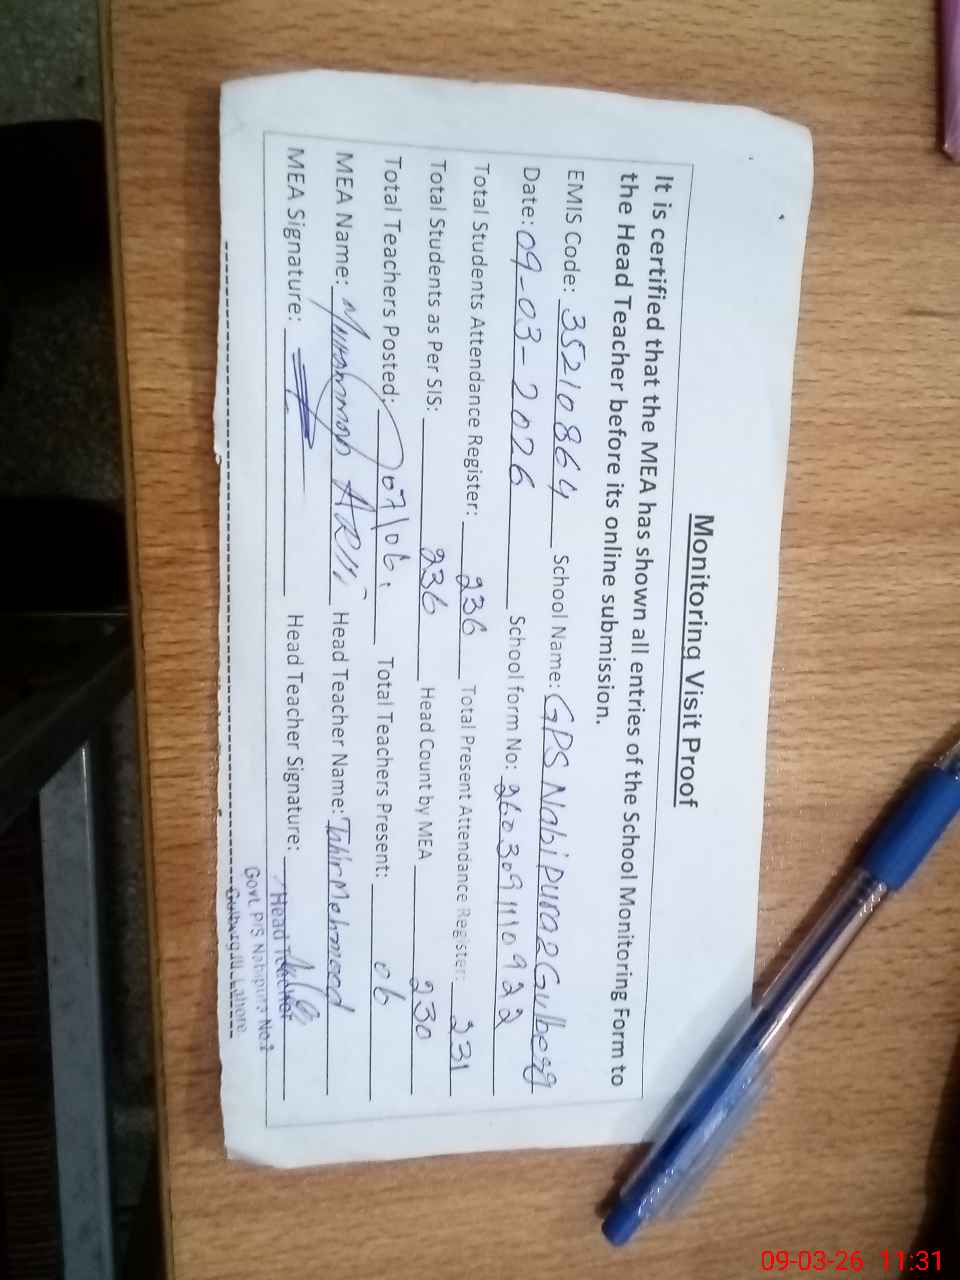 Monitoring Visit Proof
It is certified that the MEA has shown all entries of the School Monitoring Form to
the Head Teacher before its online submission.
EMIS Code: 35210864 School Name: GPS Nabipura 2 Gulberg
Date: 09-03-2026 School form No: 260309111092 2
Total Students Attendance Register: 236 Total Present Attendance Register: 231
Total Students as Per SIS: 236 Head Count by MEA 230
Total Teachers Posted: 07/06 Total Teachers Present: 06
MEA Name: Muhammad ARIF Head Teacher Name: Tahir Mehmood
MEA Signature: Head Teacher Signature:
Head Teacher
Govt. P/S Nabipura No.2
Gulberg III Lahore.
09-03-26 11:31